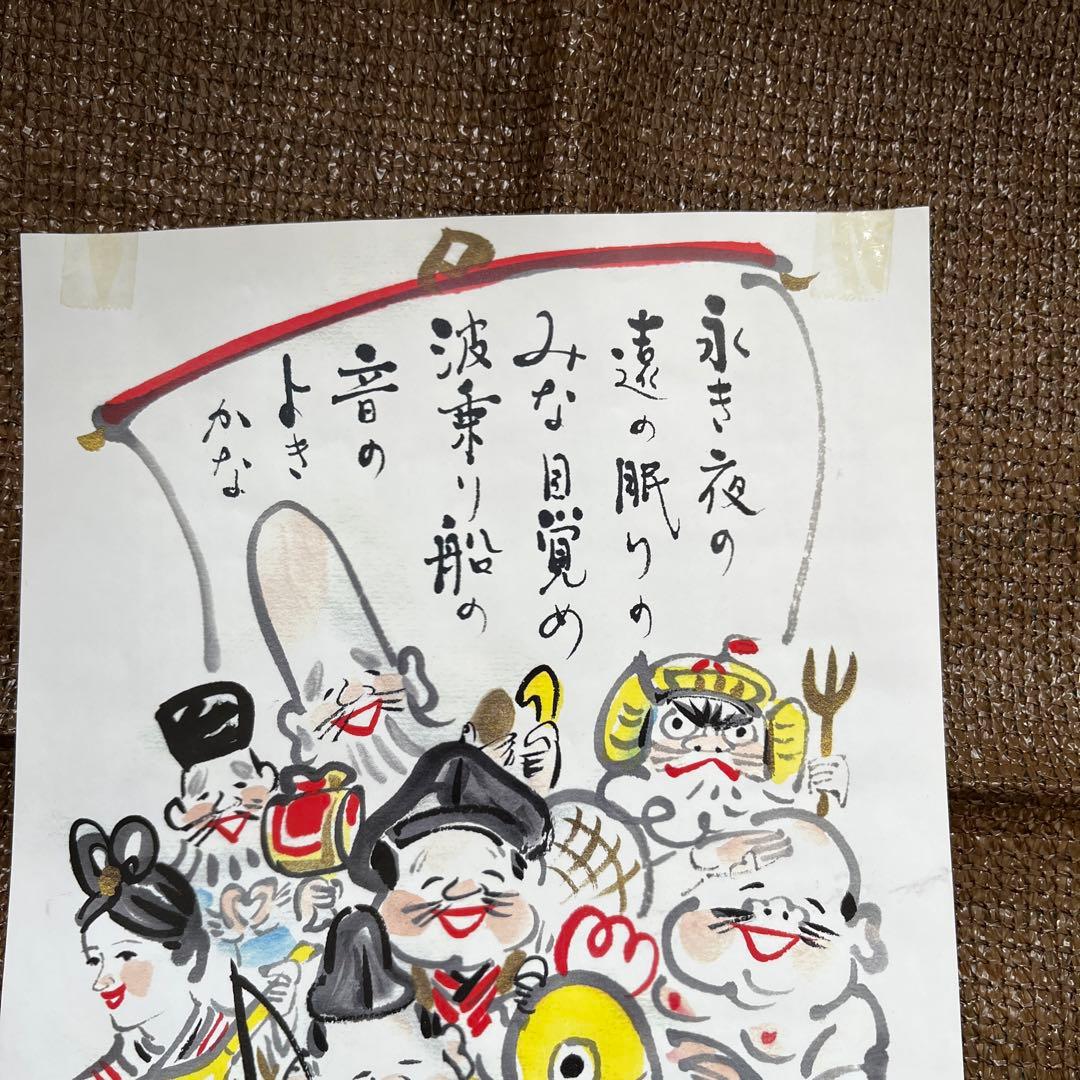 永き夜の
遠の眠りの
みな目覚め
波乗り船の
音の
よき
かな